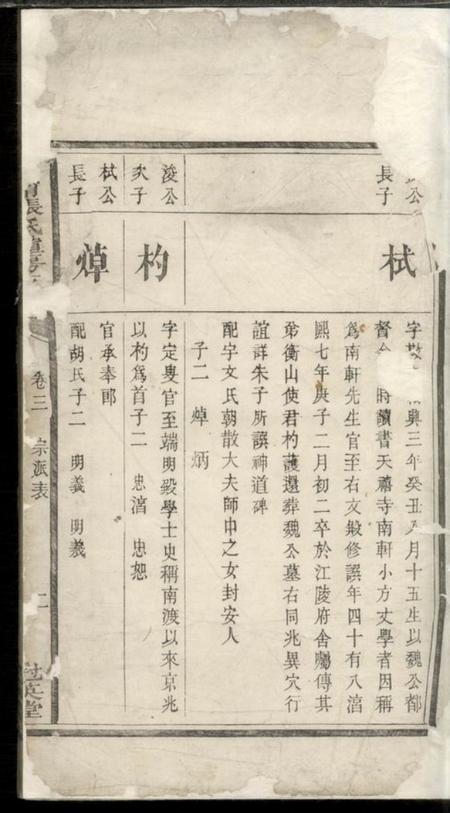 公
長子
栻
字 興三年癸丑八月十五生以魏公都
督 時讀書天禧寺南軒小方丈學者因稱
爲南軒先生官至右文殿修譔年四十有八淳
熙七年庚子二月初二卒於江陵府舍囑傳其
弟衡山使君杓護還葬魏公墓右同兆異穴行
誼詳朱子所譔神道碑
配宇文氏朝散大夫師中之女封安人
子二 焯 炳
浚公
次子
杓
字定叟官至端明殿學士史稱南渡以來京兆
以杓爲首子二 忠淳 忠恕
栻公
長子
焯
官承奉郎
配胡氏子二 明義 明羲
張氏
卷三 宗派表 二
冠英堂